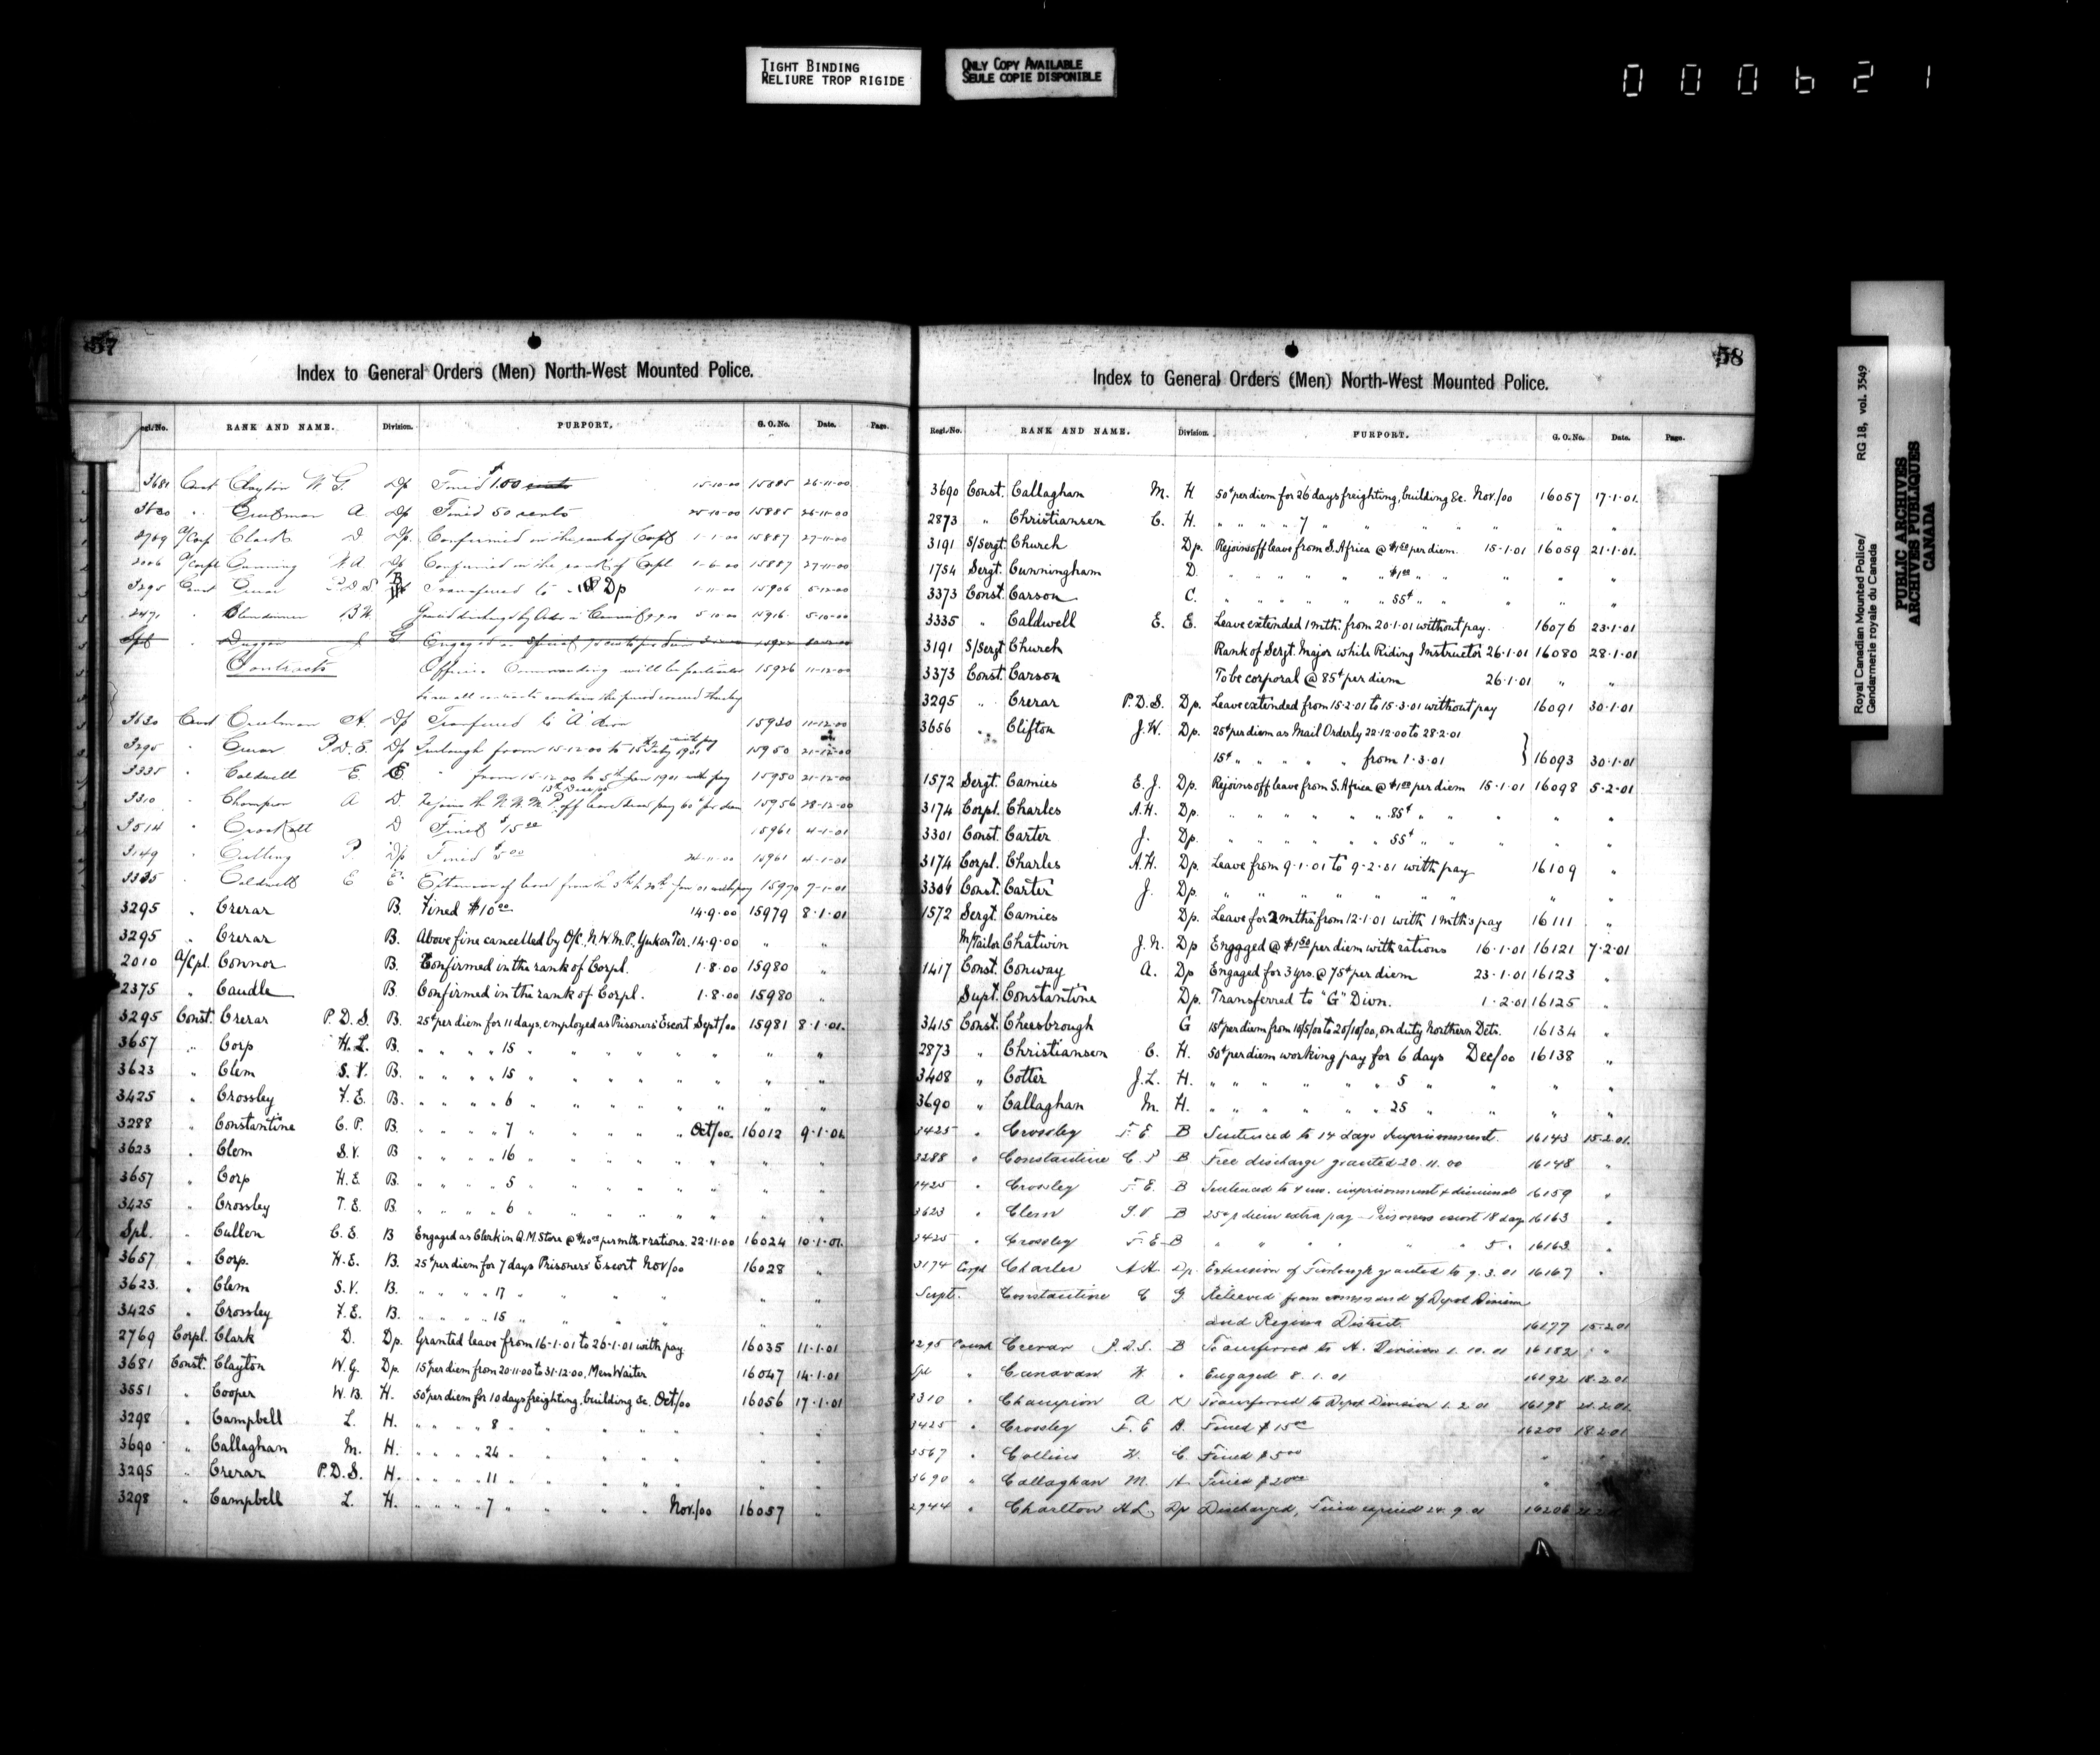 TIGHT BINDING
RELIURE TROP RIGIDE
ONLY COPY AVAILABLE
SEULE COPIE DISPONIBLE
000621
57
Index to General Orders (Men) North-West Mounted Police.
Regl. No. RANK AND NAME. Division. PURPORT. G. O. No. Date. Page.
3681 Const Clayton W. G. Dp Fined $1.00 cents 15-10-00 15885 26-11-00
3630 " Creelman A Dp Fined 50 cents 25-10-00 15885 26-11-00
2769 A/Corp Clark D Dp. Confirmed in the rank of Corpl 1-1-00 15887 27-11-00
A/Corpl Cunning W. A Dp Confirmed in the rank of Corpl 1-6-00 15887 27-11-00
3295 Const Crerar P. D. S B Transferred to Dp 1-11-00 15906 5-12-00
2471 " B. W. 5-10-00 15916 5-10-00
Spl " Duggan J G Engaged as Special
Contracts Officers Commanding will be particular 15926 11-12-00
to see all contracts contain the period covered thereby
3630 Const Creelman A. Dp Transferred to "A" Divn 15930 11-12-00
3295 " Crerar P. D. S. Dp Furlough from 15-12-00 to 15th Feby 1901 with pay 15950 21-12-00
3335 " Caldwell E. E. " from 15-12-00 to 5th Jan 1901 with pay 15950 21-12-00
3310 " Champion A D. Rejoins the N. W. M. P. off leave 15956 28-12-00
3514 " Crockett D Fined $15 00 15961 4-1-01
3149 " Cutting P. Dp Fined $5 00 24-11-00 15961 4-1-01
3335 " Caldwell E E. Extension of leave from the 5th to 20th Jan 01 with pay 15970 7-1-01
3295 " Crerar B. Fined $10 00 14.9.00 15979 8.1.01
3295 " Crerar B. Above fine cancelled by O/C. N.W.M.P. Yukon Ter. 14.9.00 " "
2010 A/Cpl. Connor B. Confirmed in the rank of Corpl. 1.8.00 15980 "
2375 " Caudle B. Confirmed in the rank of Corpl. 1.8.00 15980 "
3295 Const. Crerar P. D. S. B. 25¢ per diem for 11 days, employed as Prisoners' Escort Sept/00 15981 8.1.01.
3657 " Corp H. E. B. " " " " 15 " " " " " " "
3623 " Clem S. V. B. " " " " 15 " " " " " " "
3425 " Crossley F. E. B. " " " " 6 " " " " " " "
3288 " Constantine C. P. B. " " " " 7 " " " " Oct/00. 16012 9.1.01.
3623 " Clem S. V. B " " " " 16 " " " " " " "
3657 " Corp H. E. B. " " " " 5 " " " " " " "
3425 " Crossley F. E. B. " " " " 6 " " " " " " "
Spl. " Cullen C. E. B Engaged as Clerk in Q. M. Store @ $40 00 per mth + rations. 22.11.00 16024 10.1.01.
3657 " Corp. H. E. B. 25¢ per diem for 7 days Prisoners' Escort Nov/00 16028 "
3623. " Clem S. V. B. " " " " 17 " " " " " "
3425 " Crossley F. E. B. " " " " 15 " " " " " "
2769 Corpl. Clark D. Dp. Granted leave from 16.1.01 to 26.1.01 with pay 16035 11.1.01
3681 Const. Clayton W. G. Dp. 15¢ per diem from 20.11.00 to 31.12.00, Mess Waiter 16047 14.1.01
3551 " Cooper W. B. H. 50¢ per diem for 10 days freighting, building &c. Oct/00 16056 17.1.01
3298 " Campbell L. H. " " " " 8 " " " " " "
3690 " Callaghan M. H. " " " " 24 " " " " " "
3295 " Crerar P. D. S. H. " " " " 11 " " " " " "
3298 " Campbell L. H. " " " " 7 " " " " Nov./00 16057 "
58
Index to General Orders (Men) North-West Mounted Police.
Regl. No. RANK AND NAME. Division. PURPORT. G. O. No. Date. Page.
3690 Const. Callaghan M. H 50¢ per diem for 26 days freighting, building &c. Nov./00 16057 17.1.01.
2873 " Christiansen C. H. " " " " 7 " " " " " "
3191 S/Sergt. Church Dp. Rejoins off leave from S. Africa @ $1 50 per diem. 15.1.01 16059 21.1.01.
1754 Sergt. Cunningham D. " " " " " " $1 00 " " " " "
3373 Const. Carson C. " " " " " " 55¢ " " " "
3335 " Caldwell E. E. Leave extended 1 mth. from 20.1.01 without pay. 16076 23.1.01
3191 S/Sergt Church Rank of Sergt. Major while Riding Instructor 26.1.01 16080 28.1.01
3373 Const. Carson To be corporal @ 85¢ per diem 26.1.01 " "
3295 " Crerar P. D. S. Dp. Leave extended from 15.2.01 to 15.3.01 without pay 16091 30.1.01
3656 " Clifton J. W. Dp. 25¢ per diem as Mail Orderly 22.12.00 to 28.2.01
15¢ " " " " " from 1.3.01 } 16093 30.1.01
1572 Sergt. Camies E. J. Dp. Rejoins off leave from S. Africa @ $1 00 per diem 15.1.01 16098 5.2.01
3174 Corpl. Charles A. H. Dp. " " " " " " 85¢ " " " " "
3301 Const. Carter J. Dp. " " " " " " 55¢ " " " " "
3174 Corpl. Charles A. H. Dp. Leave from 9.1.01 to 9.2.01 with pay 16109 "
3301 Const. Carter J. Dp. " " " " " " " "
1572 Sergt. Camies Dp. Leave for 2 mths from 12.1.01 with 1 mth's pay 16111 "
M/Tailor Chatwin J. N. Dp Engaged @ $1 50 per diem with rations 16.1.01 16121 7.2.01
1417 Const. Conway A. Dp Engaged for 3 yrs. @ 75¢ per diem 23.1.01 16123 "
Supt. Constantine Dp. Transferred to "G" Divn. 1.2.01 16125 "
3415 Const. Cheesbrough G 15¢ per diem from 10/5/00 to 25/10/00, on duty Northern Dets. 16134 "
2873 " Christiansen C. H. 50¢ per diem working pay for 6 days Dec/00 16138 "
3408 " Cotter J. L. H. " " " " " " 5 " " "
3690 " Callaghan M. H. " " " " " " 25 " " " "
3425 " Crossley F. E. B Sentenced to 14 days imprisonment. 16143 15.2.01.
3288 " Constantine C. P B Free discharge granted 20.11.00 16148 "
3425 " Crossley F. E. B Sentenced to imprisonment & dismissal 16159 "
3623 " Clem S. V B 25¢ p diem extra pay - Prisoners escort 18 days 16163 "
3425 " Crossley F. E B " " " " " 5 " 16163 "
3174 Corpl Charles A. H. Dp. Extension of Furlough granted to 9.3.01 16167 "
Supt. Constantine C G Relieved from command of Depot Division
and Regina District. 16177 15.2.01
3295 Const Crerar P. D. S. B Transferred to A. Division 1.10.01 16182 "
Spl " Canavan W. " Engaged 8.1.01 16192 18.2.01
3310 " Champion A D Transferred to Depot Division 1.2.01 16198 21.2.01.
3425 " Crossley F. E B. Fined $15 00 16200 18.2.01
3567 " Collins W. C. Fined $5 00 "
3690 " Callaghan M. H Fined $20 00 "
2944 " Charlton H. L. Dp Discharged, Time expired 24.9.01 16206
Royal Canadian Mounted Police/
Gendarmerie royale du Canada
RG 18, vol. 3549
PUBLIC ARCHIVES
ARCHIVES PUBLIQUES
CANADA